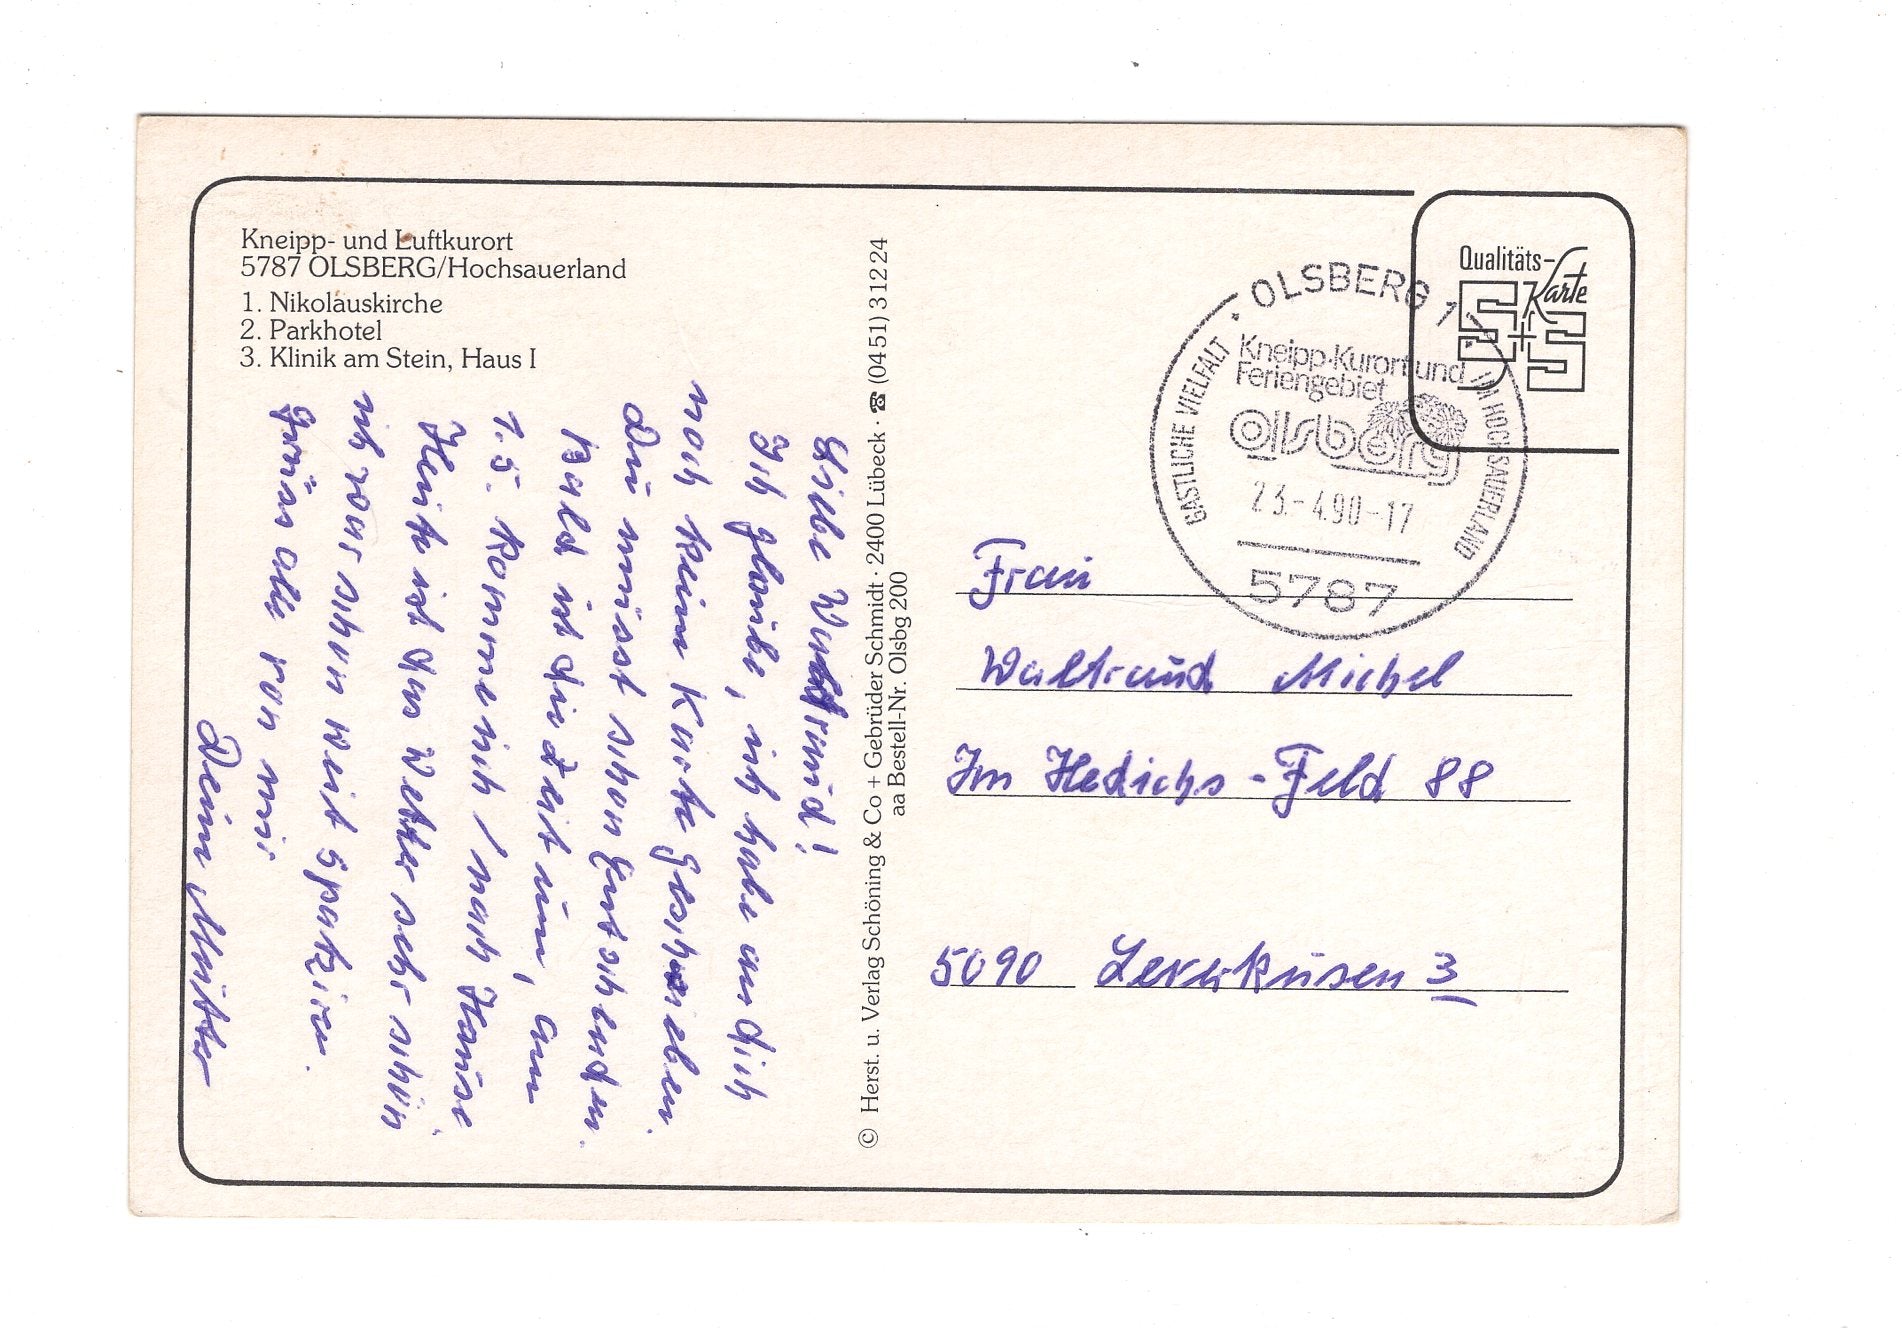 Kneipp- und Luftkurort
5787 OLSBERG/Hochsauerland
1. Nikolauskirche
2. Parkhotel
3. Klinik am Stein, Haus I
Liebe Waltraud!
Ich glaube, ich habe an dich
noch kein Karte geschreben.
Du musst schon Entschulden.
Bald ist die Zeit um, am
1.5. komme ich / nach Hause.
Heute ist das Wetter sehr schön
ich war schon weit spatzieren.
grüss alle von mir
Dein Mutter
© Herst. u. Verlag Schöning & Co + Gebrüder Schmidt · 2400 Lübeck · ☎ (04 51) 3 12 24
aa Bestell-Nr. Olsbg 200
Qualitäts-
Karte
S+S
OLSBERG 1
GASTLICHE VIELFALT
IM HOCHSAUERLAND
Kneipp-Kurort und
Feriengebiet
olsberg
23.-4.90-17
5787
Frau
Waltraud Michel
Im Hedrichs-Feld 88
5090 Leverkusen 31